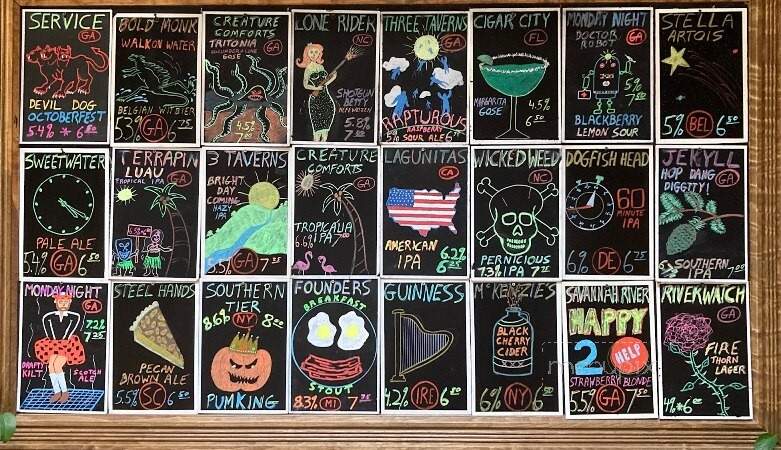 SERVICE
GA
DEVIL DOG
OCTOBERFEST
5.4% * 6 50
BOLD MONK
WALK ON WATER
BELGIAN WITBIER
5.5% GA 6 75
CREATURE
COMFORTS
TRITONIA
GA
CUCUMBER & LIME
GOSE
4.5%
7 00
LONE RIDER
NC
SHOTGUN
BETTY
HEFEWEIZEN
5.8%
7 00
THREE TAVERNS
GA
RAPTUROUS
RASPBERRY
5% SOUR ALE 6
CIGAR CITY
FL
MARGARITA
GOSE
4.5%
6 50
MONDAY NIGHT
DOCTOR
ROBOT
GA
5%
7 50
BLACKBERRY
LEMON SOUR
STELLA
ARTOIS
5% BEL 6 50
SWEETWATER
PALE ALE
5.4% GA 6 50
TERRAPIN
LUAU
GA
TROPICAL IPA
3 TAVERNS
BRIGHT
DAY
COMING
HAZY
IPA
GA 7 25
CREATURE
COMFORTS
GA
TROPICALIA
6.6% IPA 7 00
LAGUNITAS
CA
AMERICAN
IPA
6.2%
6 25
WICKED WEED
NC
PERNICIOUS
7.3% IPA 7 25
DOGFISH HEAD
60
MINUTE
IPA
6% DE 6 75
JEKYLL
HOP DANG
DIGGITY!
GA
SOUTHERN
IPA 7 00
MONDAY NIGHT
GA
7.2%
7 25
DRAFTY
KILT
SCOTCH
ALE
STEEL HANDS
PECAN
BROWN ALE
5.5% SC 6 50
SOUTHERN
TIER
8.6% NY 8 00
PUMKING
FOUNDERS
BREAKFAST
STOUT
8.3% MI 7 75
GUINNESS
4.2% IRE 6 50
MCKENZIE'S
BLACK
CHERRY
CIDER
6% NY 6 50
SAVANNAH RIVER
HAPPY
2
HELP
STRAWBERRY BLONDE
5% GA 7 50
RIVERWATCH
GA
FIRE
THORN
LAGER
4% * 6 00